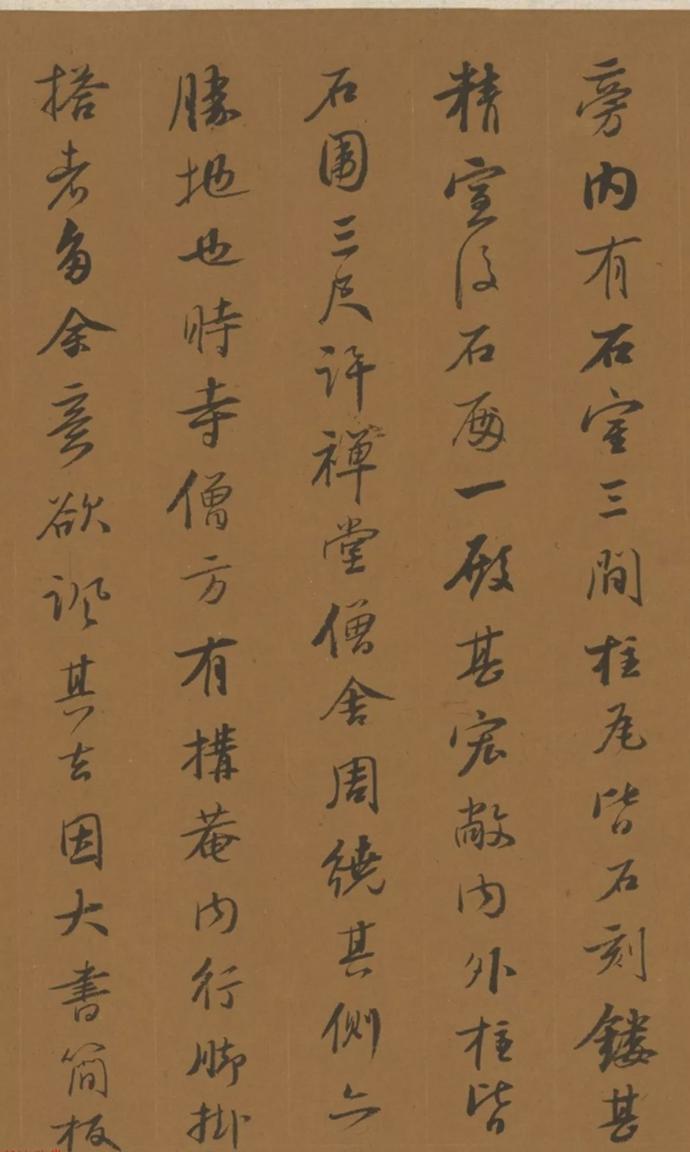 旁內有石室三間柱瓦皆石刻鏤甚
精室後石面一殿甚宏敞內外柱皆
石圍三尺許禪堂僧舍周繞其側亦
勝地也時寺僧方有構菴內行腳掛
搭者多余意欲諷其去因大書簡板